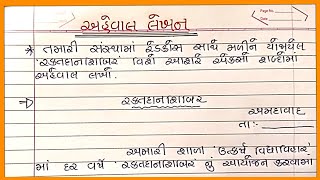 અહેવાલ લેખન
* તમારી સંસ્થામાં રેડક્રોસ સાથે મળીને યોજાયેલ
'રક્તદાનશિબિર' વિશે આશરે એકસો શબ્દોમાં
અહેવાલ લખો.
⇒ રક્તદાનશિબિર
અમદાવાદ
તા:
અમારી શાળા 'ઉત્કર્ષ વિદ્યાવિહાર'
માં દર વર્ષે 'રક્તદાનશિબિર' નું આયોજન કરવામાં